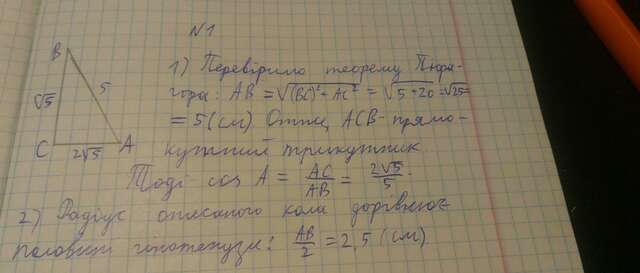 N 1
B
√5
5
C
2√5
A
1) Перевіримо теорему Піфа-
гора: AB = √(BC)² + AC² = √5 + 20 = √25 =
= 5 (см). Отже, ACB - прямо-
кутний трикутник.
Тоді cos A = AC/AB = 2√5/5.
2) Радіус описаного кола дорівнює
половині гіпотенузи: AB/2 = 2,5 (см)